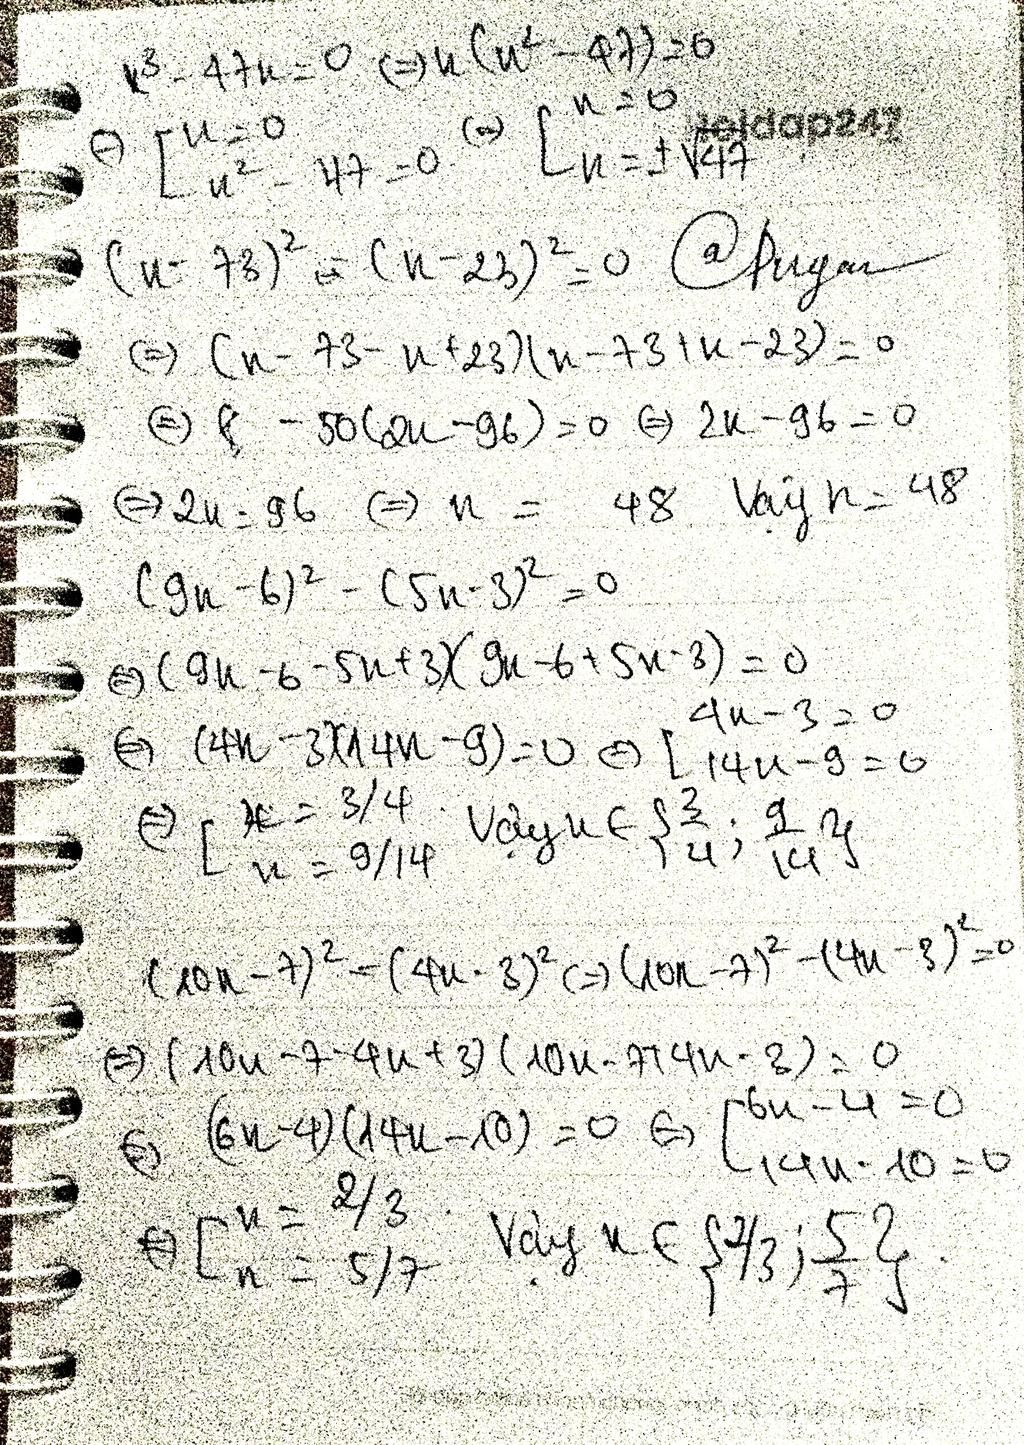 x³ - 47x = 0 (=) x(x² - 47) = 0
(=) [ x = 0 (=) [ x = 0
x² - 47 = 0. x = ±√47
hoidap247
(x - 73)² - (x - 23)² = 0
(=) (x - 73 - x + 23)(x - 73 + x - 23) = 0
(=) - 50(2x - 96) = 0 (=) 2x - 96 = 0
(=) 2x = 96 (=) x = 48 Vậy x = 48
(9x - 6)² - (5x - 3)² = 0
(=) (9x - 6 - 5x + 3)(9x - 6 + 5x - 3) = 0
(=) (4x - 3)(14x - 9) = 0 (=) [ 4x - 3 = 0
14x - 9 = 0
(=) [ x = 3/4 . Vậy x ∈ {3/4; 9/14}
x = 9/14
(10x - 7)² = (4x - 3)² (=) (10x - 7)² - (4x - 3)² = 0
(=) (10x - 7 - 4x + 3)(10x - 7 + 4x - 3) = 0
(=) (6x - 4)(14x - 10) = 0 (=) [ 6x - 4 = 0
14x - 10 = 0
(=) [ x = 2/3 . Vậy x ∈ {2/3; 5/7}.
x = 5/7